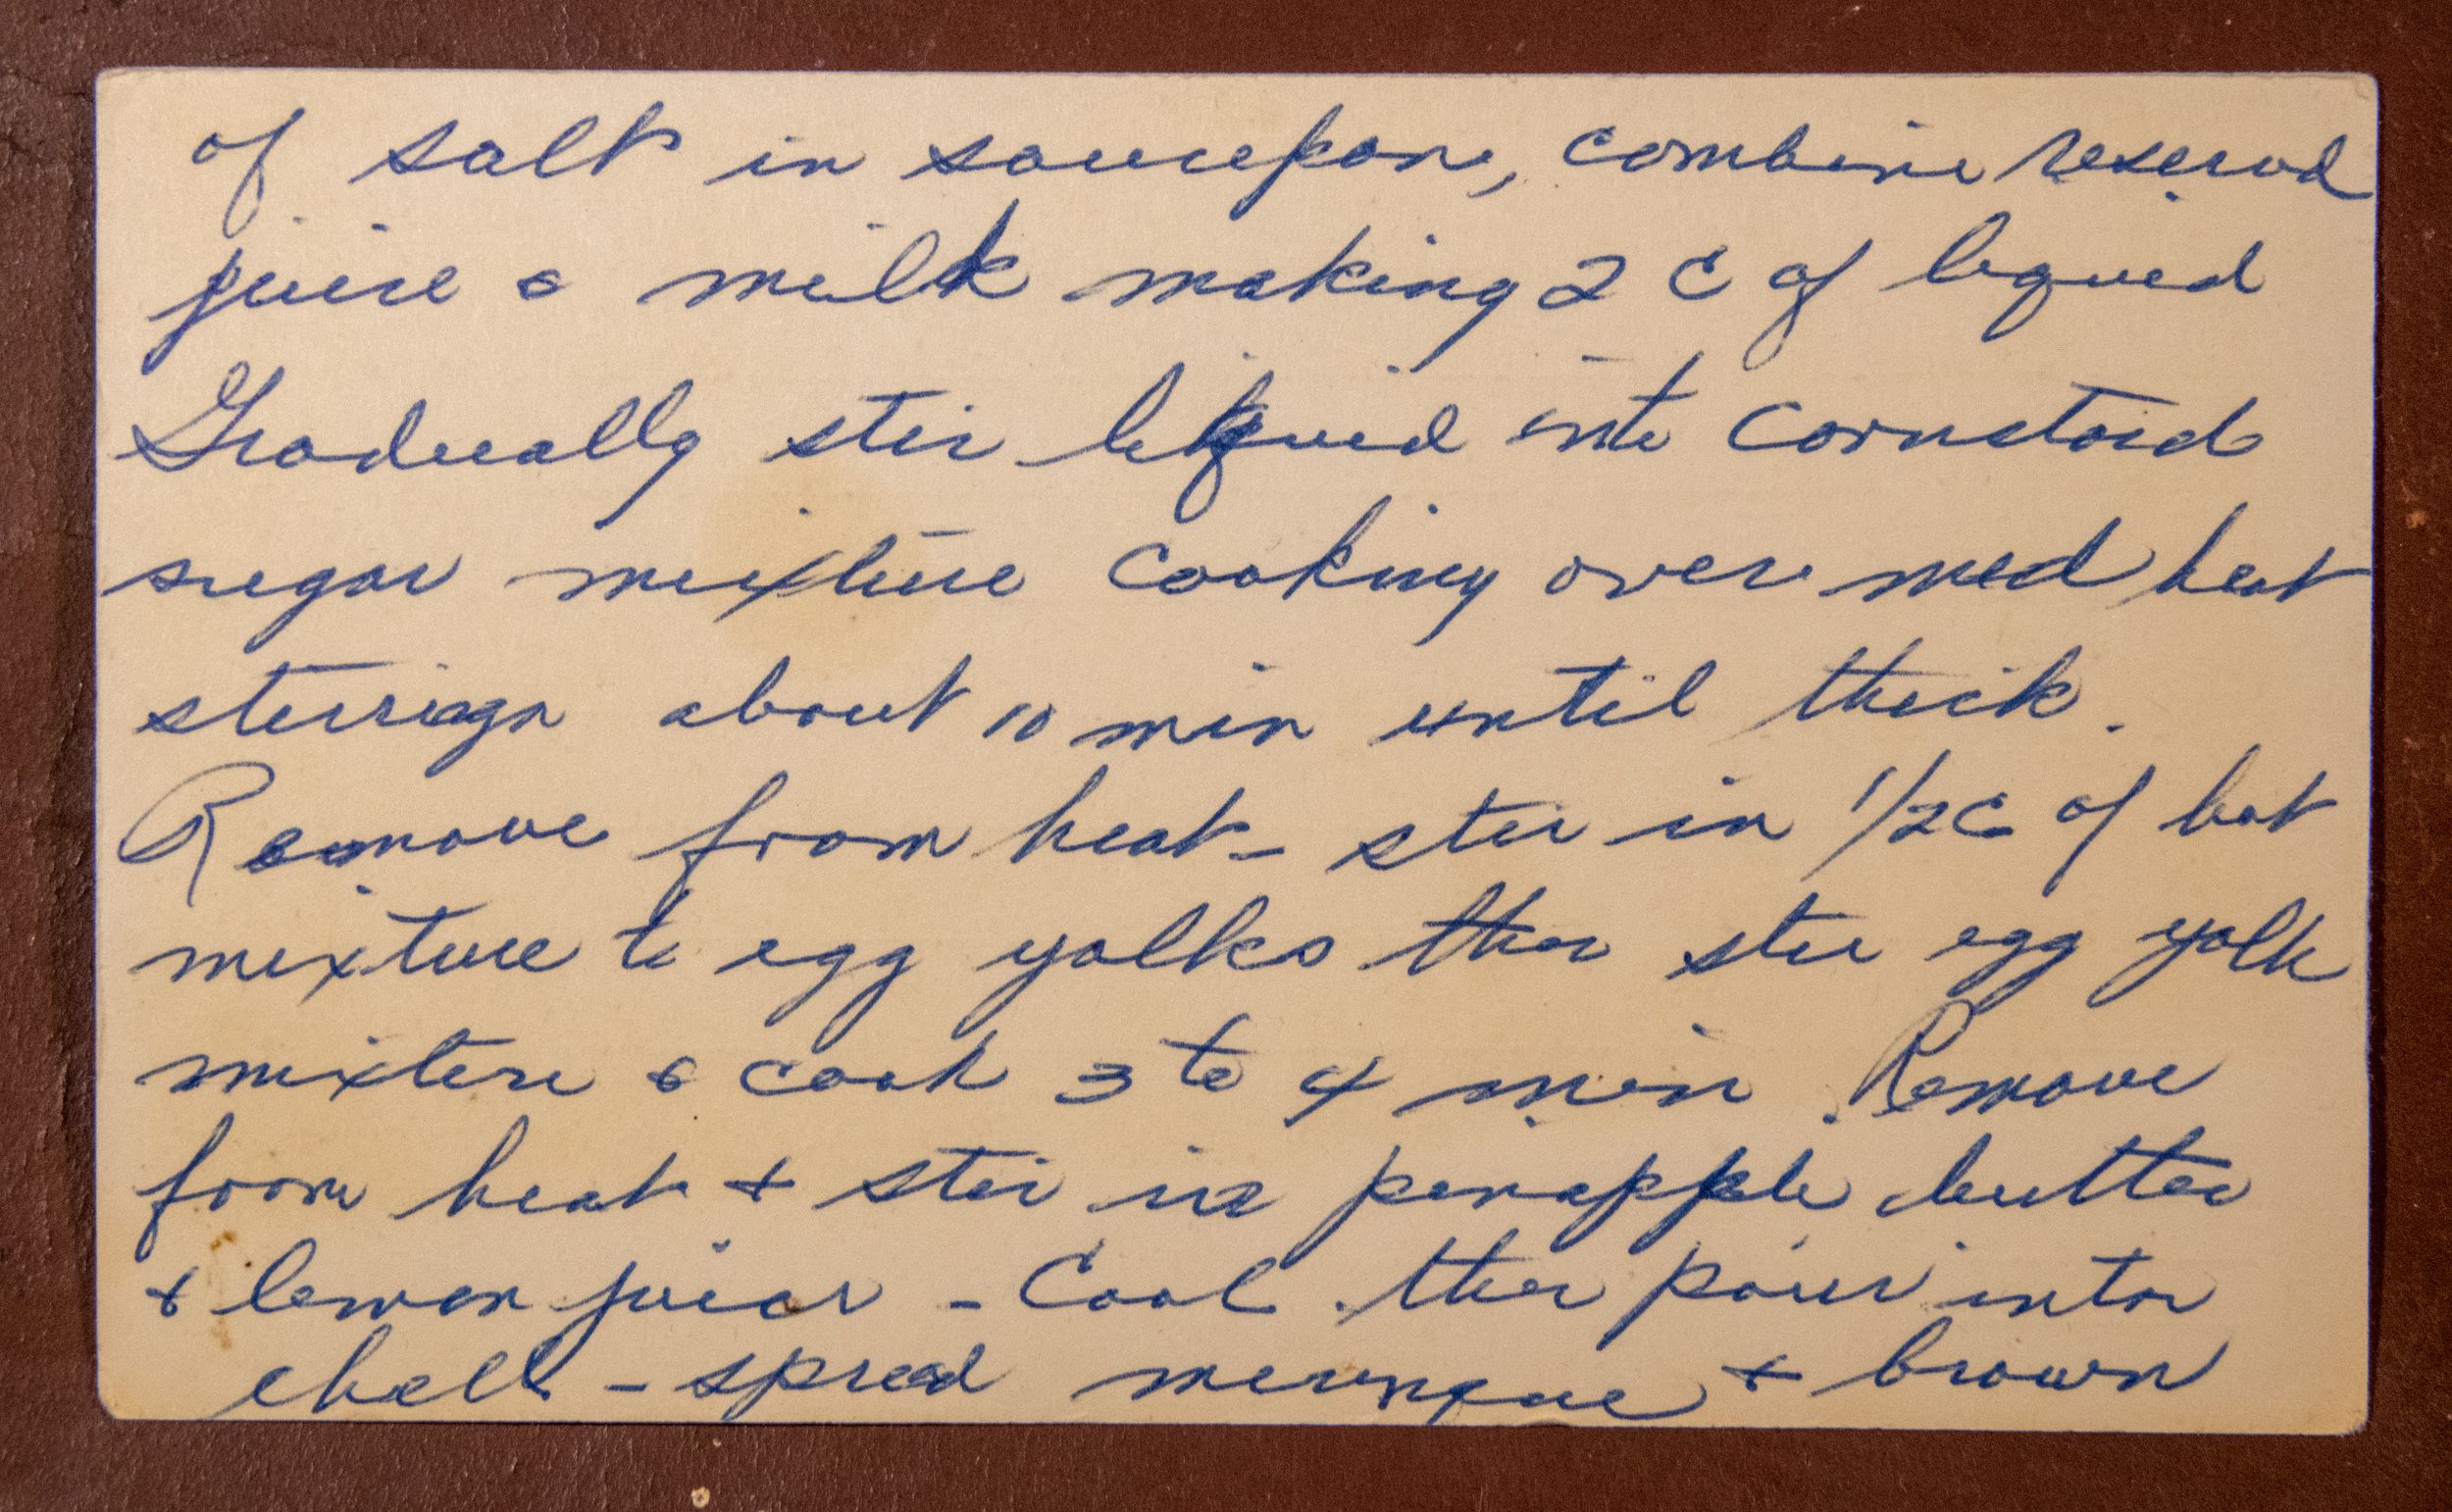 of salt in saucepan, combine reserved
juice & milk making 2 C of liquid
Gradually stir liquid into Cornstarch
sugar mixture cooking over med heat
stirring about 10 min until thick.
Remove from heat - stir in 1/2 C of hot
mixture to egg yolks then stir egg yolk
mixture & cook 3 to 4 min. Remove
from heat + stir in pinapple butter
+ lemon juice - Cool then pour into
shell - spread meringue + brown